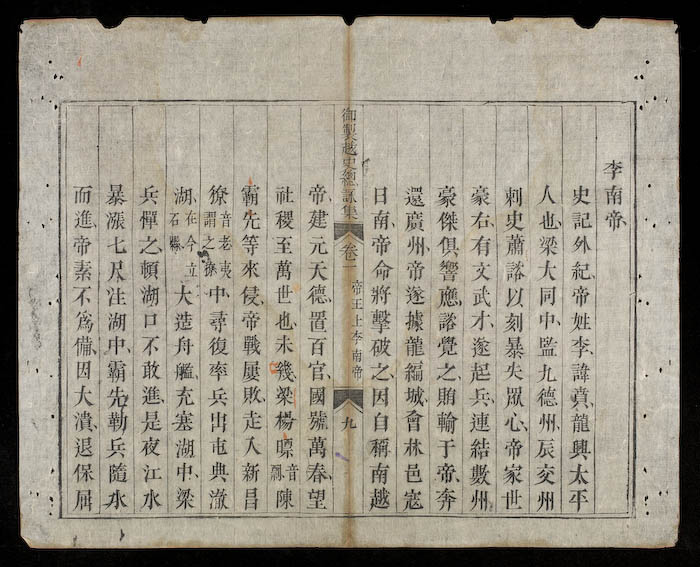 李南帝
史記外紀帝姓李諱賁龍興太平
人也梁大同中監九德州辰交州
刺史蕭諮以刻暴失眾心帝家世
豪右有文武才遂起兵連結數州
豪傑俱響應諮覺之賄輸于帝奔
還廣州帝遂據龍編城會林邑寇
日南帝命將擊破之因自稱南越
御製越史總詠集 卷一 帝王上李南帝 九
帝建元天德置百官國號萬春望
社稷至萬世也未幾梁楊瞟音飄陳
霸先等來侵帝戰屢敗走入新昌
獠音老夷謂之獠中尋復率兵出屯典澈
湖在今立石縣大造舟艦充塞湖中梁
兵憚之頓湖口不敢進是夜江水
暴漲七尺注湖中霸先勒兵隨水
而進帝素不爲備因大潰退保屈